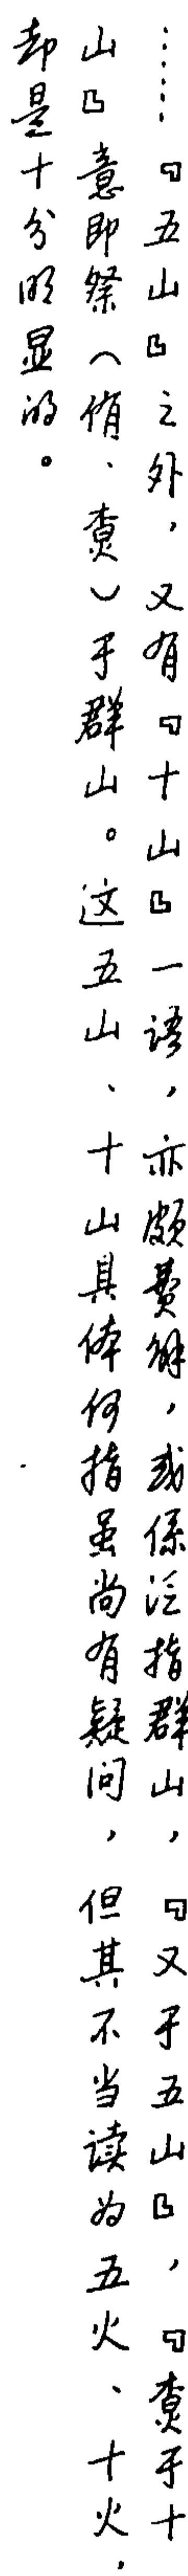 ……『五山』之外，又有『十山』一语，亦颇费解，或系泛指群山，『又于五山』，『𤉲于十
山』意即祭（侑、𤉲）于群山。这五山、十山具体何指虽尚有疑问，但其不当读为五火、十火，
却是十分明显的。